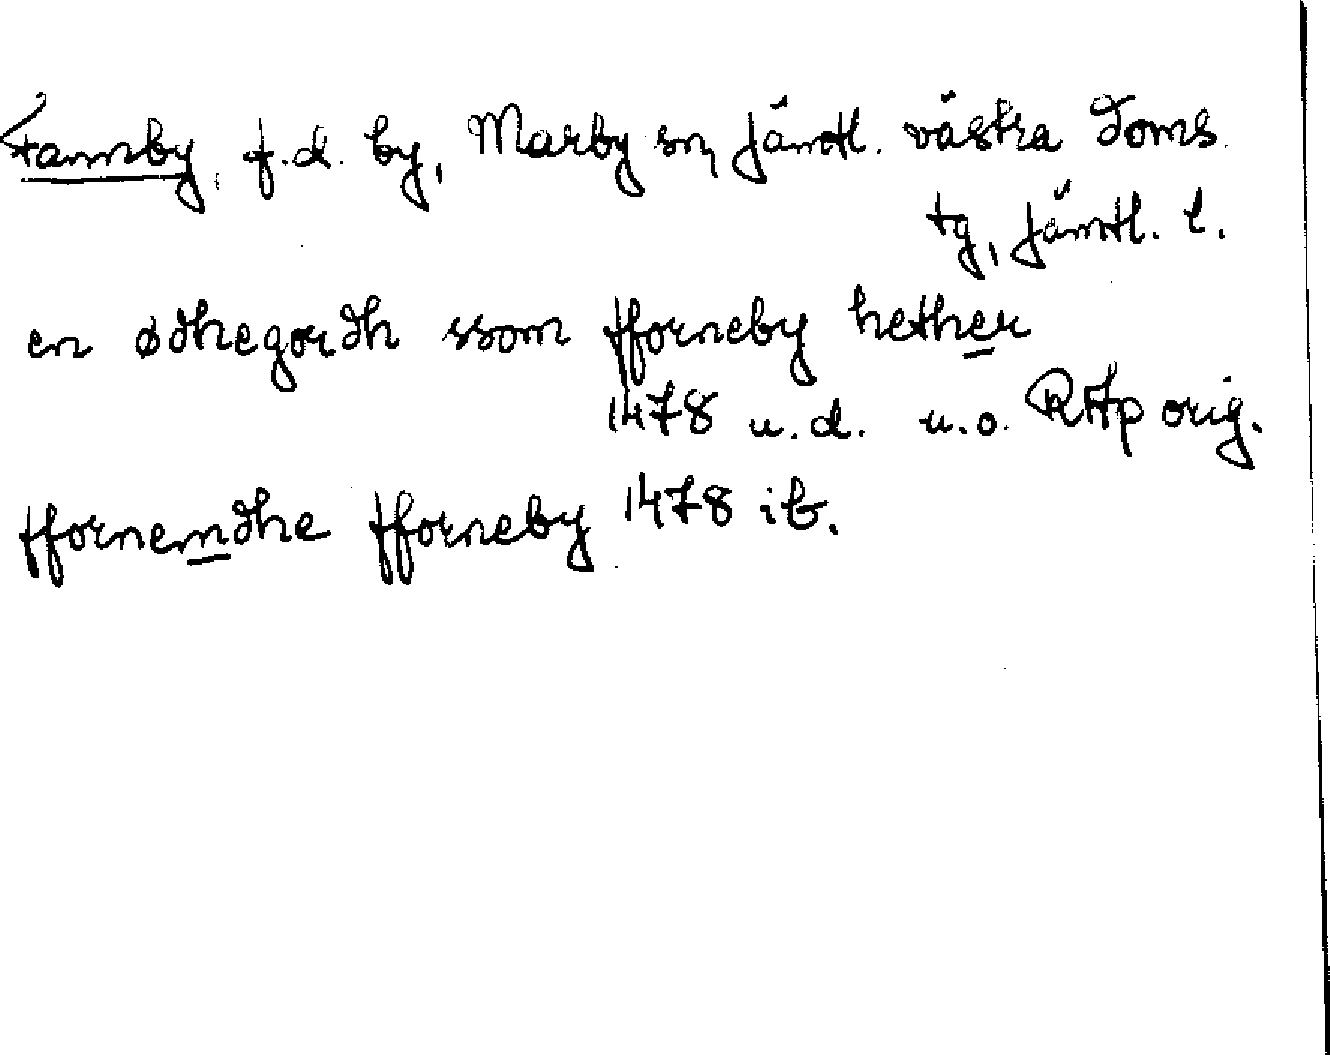 Fannby, f.d. by, Marby sn, Jämtl. västra doms.
tg, Jämtl. l.
en ødhegordh ssom fforneby hether
1478 u.d. u.o. RAp orig.
ffornemdhe fforneby 1478 ib.